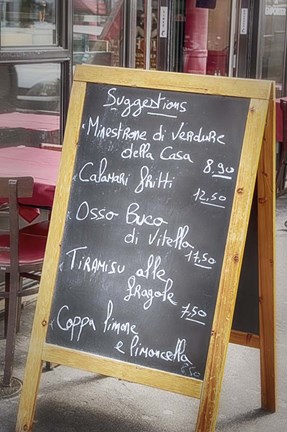 Suggestions
Minestrone di verdure
della Casa 8,90
Calamari fritti
12,50
Osso Buco
di vitella
17,50
Tiramisu alle
fragole 7,50
Coppa limone
e limoncella